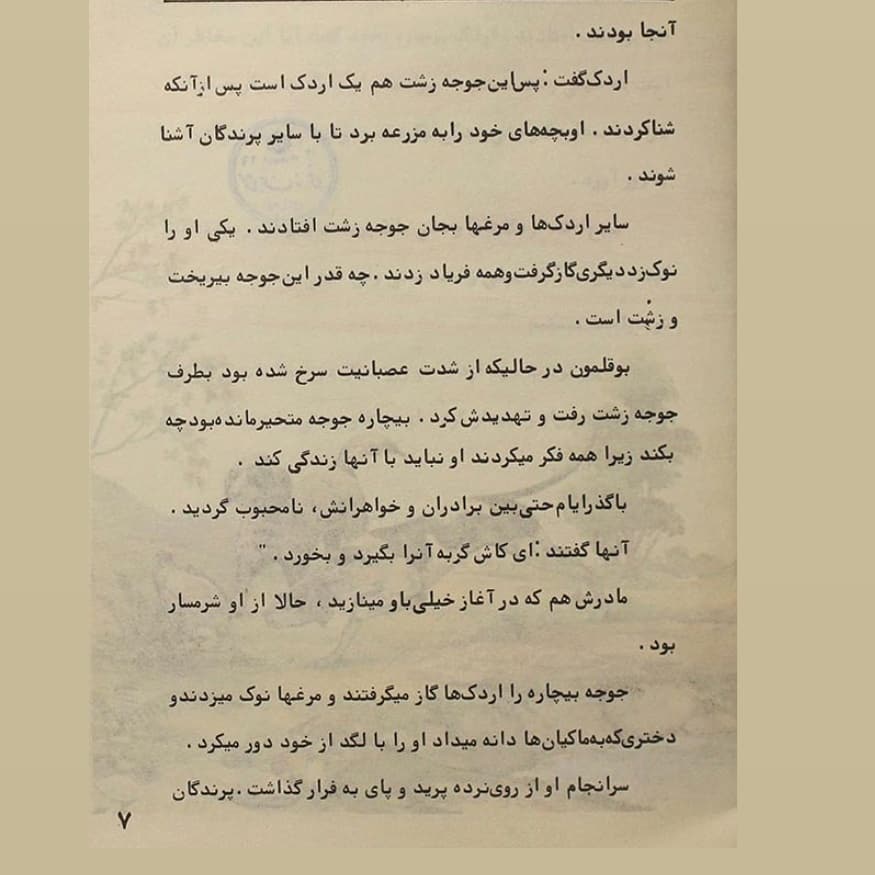 آنجا بودند .
اردک‌گفت : پس‌این‌جوجه زشت هم یک اردک است پس ازآنکه
شناکردند . اوبچه‌های خود رابه مزرعه برد تا با سایر پرندگان آشنا
شوند .
سایر اردک‌ها و مرغها بجان جوجه زشت افتادند . یکی او را
نوک‌زددیگری‌گازگرفت‌وهمه فریاد زدند .چه قدر این‌جوجه بیریخت
و زشت است .
بوقلمون در حالیکه از شدت عصبانیت سرخ شده بود بطرف
جوجه زشت رفت و تهدیدش‌کرد . بیچاره جوجه متحیرمانده‌بودچه
بکند زیرا همه فکر میکردند او نباید با آنها زندگی کند .
باگذرایام‌حتی‌بین برادران و خواهرانش، نامحبوب گردید .
آنها گفتند :ای کاش گربه آنرا بگیرد و بخورد . "
مادرش هم که در آغاز خیلی‌باو مینازید ، حالا از او شرمسار
بود .
جوجه بیچاره را اردک‌ها گاز میگرفتند و مرغها نوک میزدندو
دختری‌که‌به‌ماکیان‌ها دانه میداد او را با لگد از خود دور میکرد .
سرانجام او از روی‌نرده پرید و پای به فرار گذاشت .پرندگان
۷